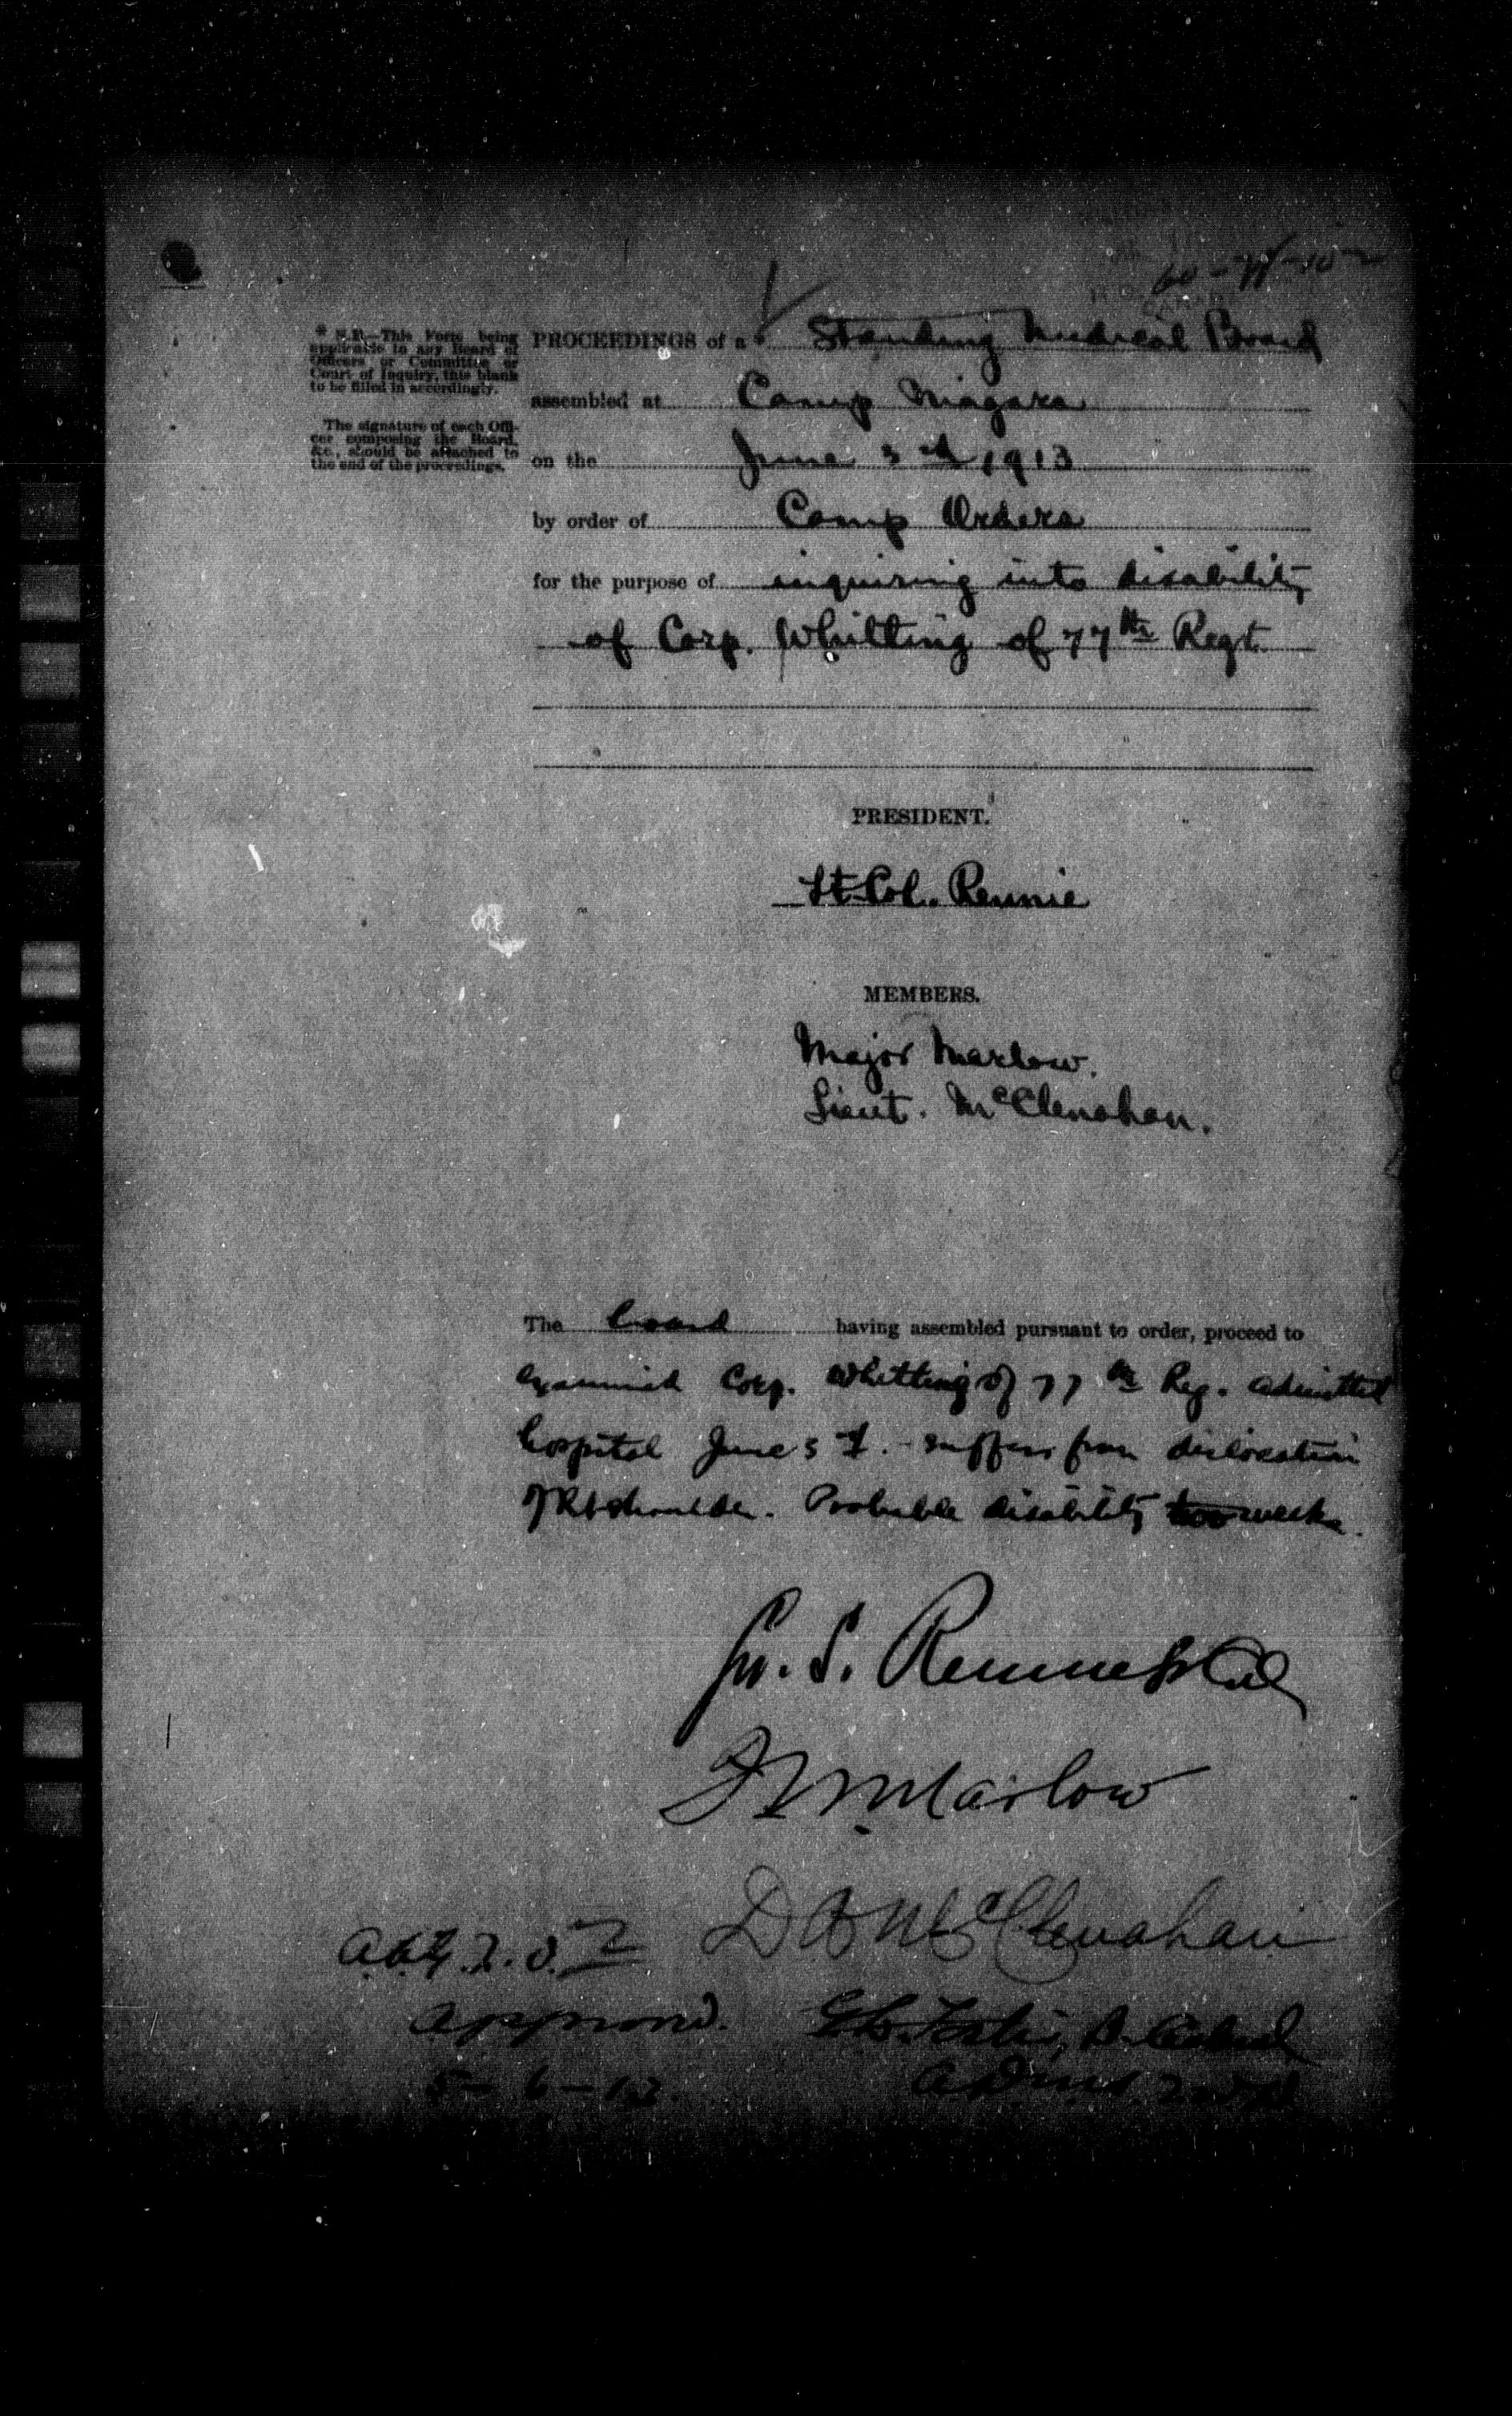 PROCEEDINGS of a * Standing Medical Board
* N.B.—This Form being
applicable to any Board of
Officers or Committee or
Court of Inquiry, this blank
to be filled in accordingly.
assembled at Camp Niagara
The signature of each Offi-
cer composing the Board,
&c., should be attached to
the end of the proceedings.
on the June 3rd 1913
by order of Camp Orders
for the purpose of inquiring into disability
of Corp. Whitting of 77th Regt.
PRESIDENT.
Lt Col. Rennie
MEMBERS.
Major Marlow.
Lieut. McClenahan.
The board having assembled pursuant to order, proceed to
Corp. Whitting of 77th Reg. admitted
hospital June 3rd. - suffers from dislocation
of Rt shoulder. Probable disability two weeks.
G. S. Rennie Lt Col
Marlow
McClenahan
approved.
5-6-13.